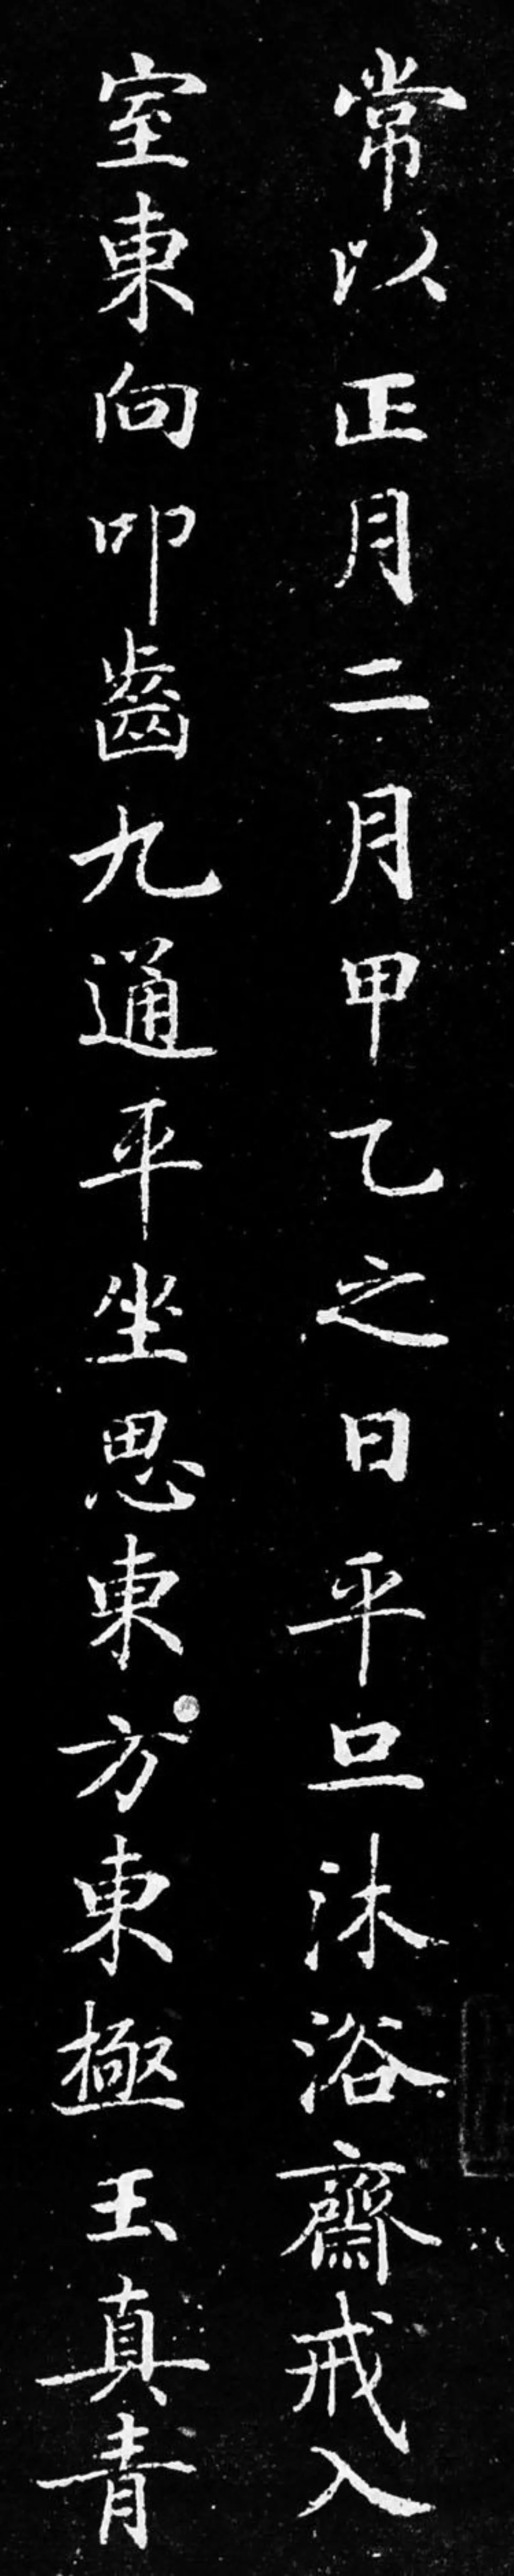 常以正月二月甲乙之日平旦沐浴齋戒入
室東向叩齒九通平坐思東方東極玉真青